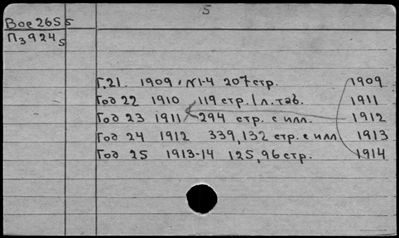 5
Вос 265 5
П3924 5
Г.21. 1909. №1-4 207 стр. 1909
Год 22 1910 119 стр. 1 л. таб. 1911
Год 23 1911 294 стр. с илл. 1912
Год 24 1912 339,132 стр. с илл 1913
Год 25 1913-14 125,96 стр. 1914